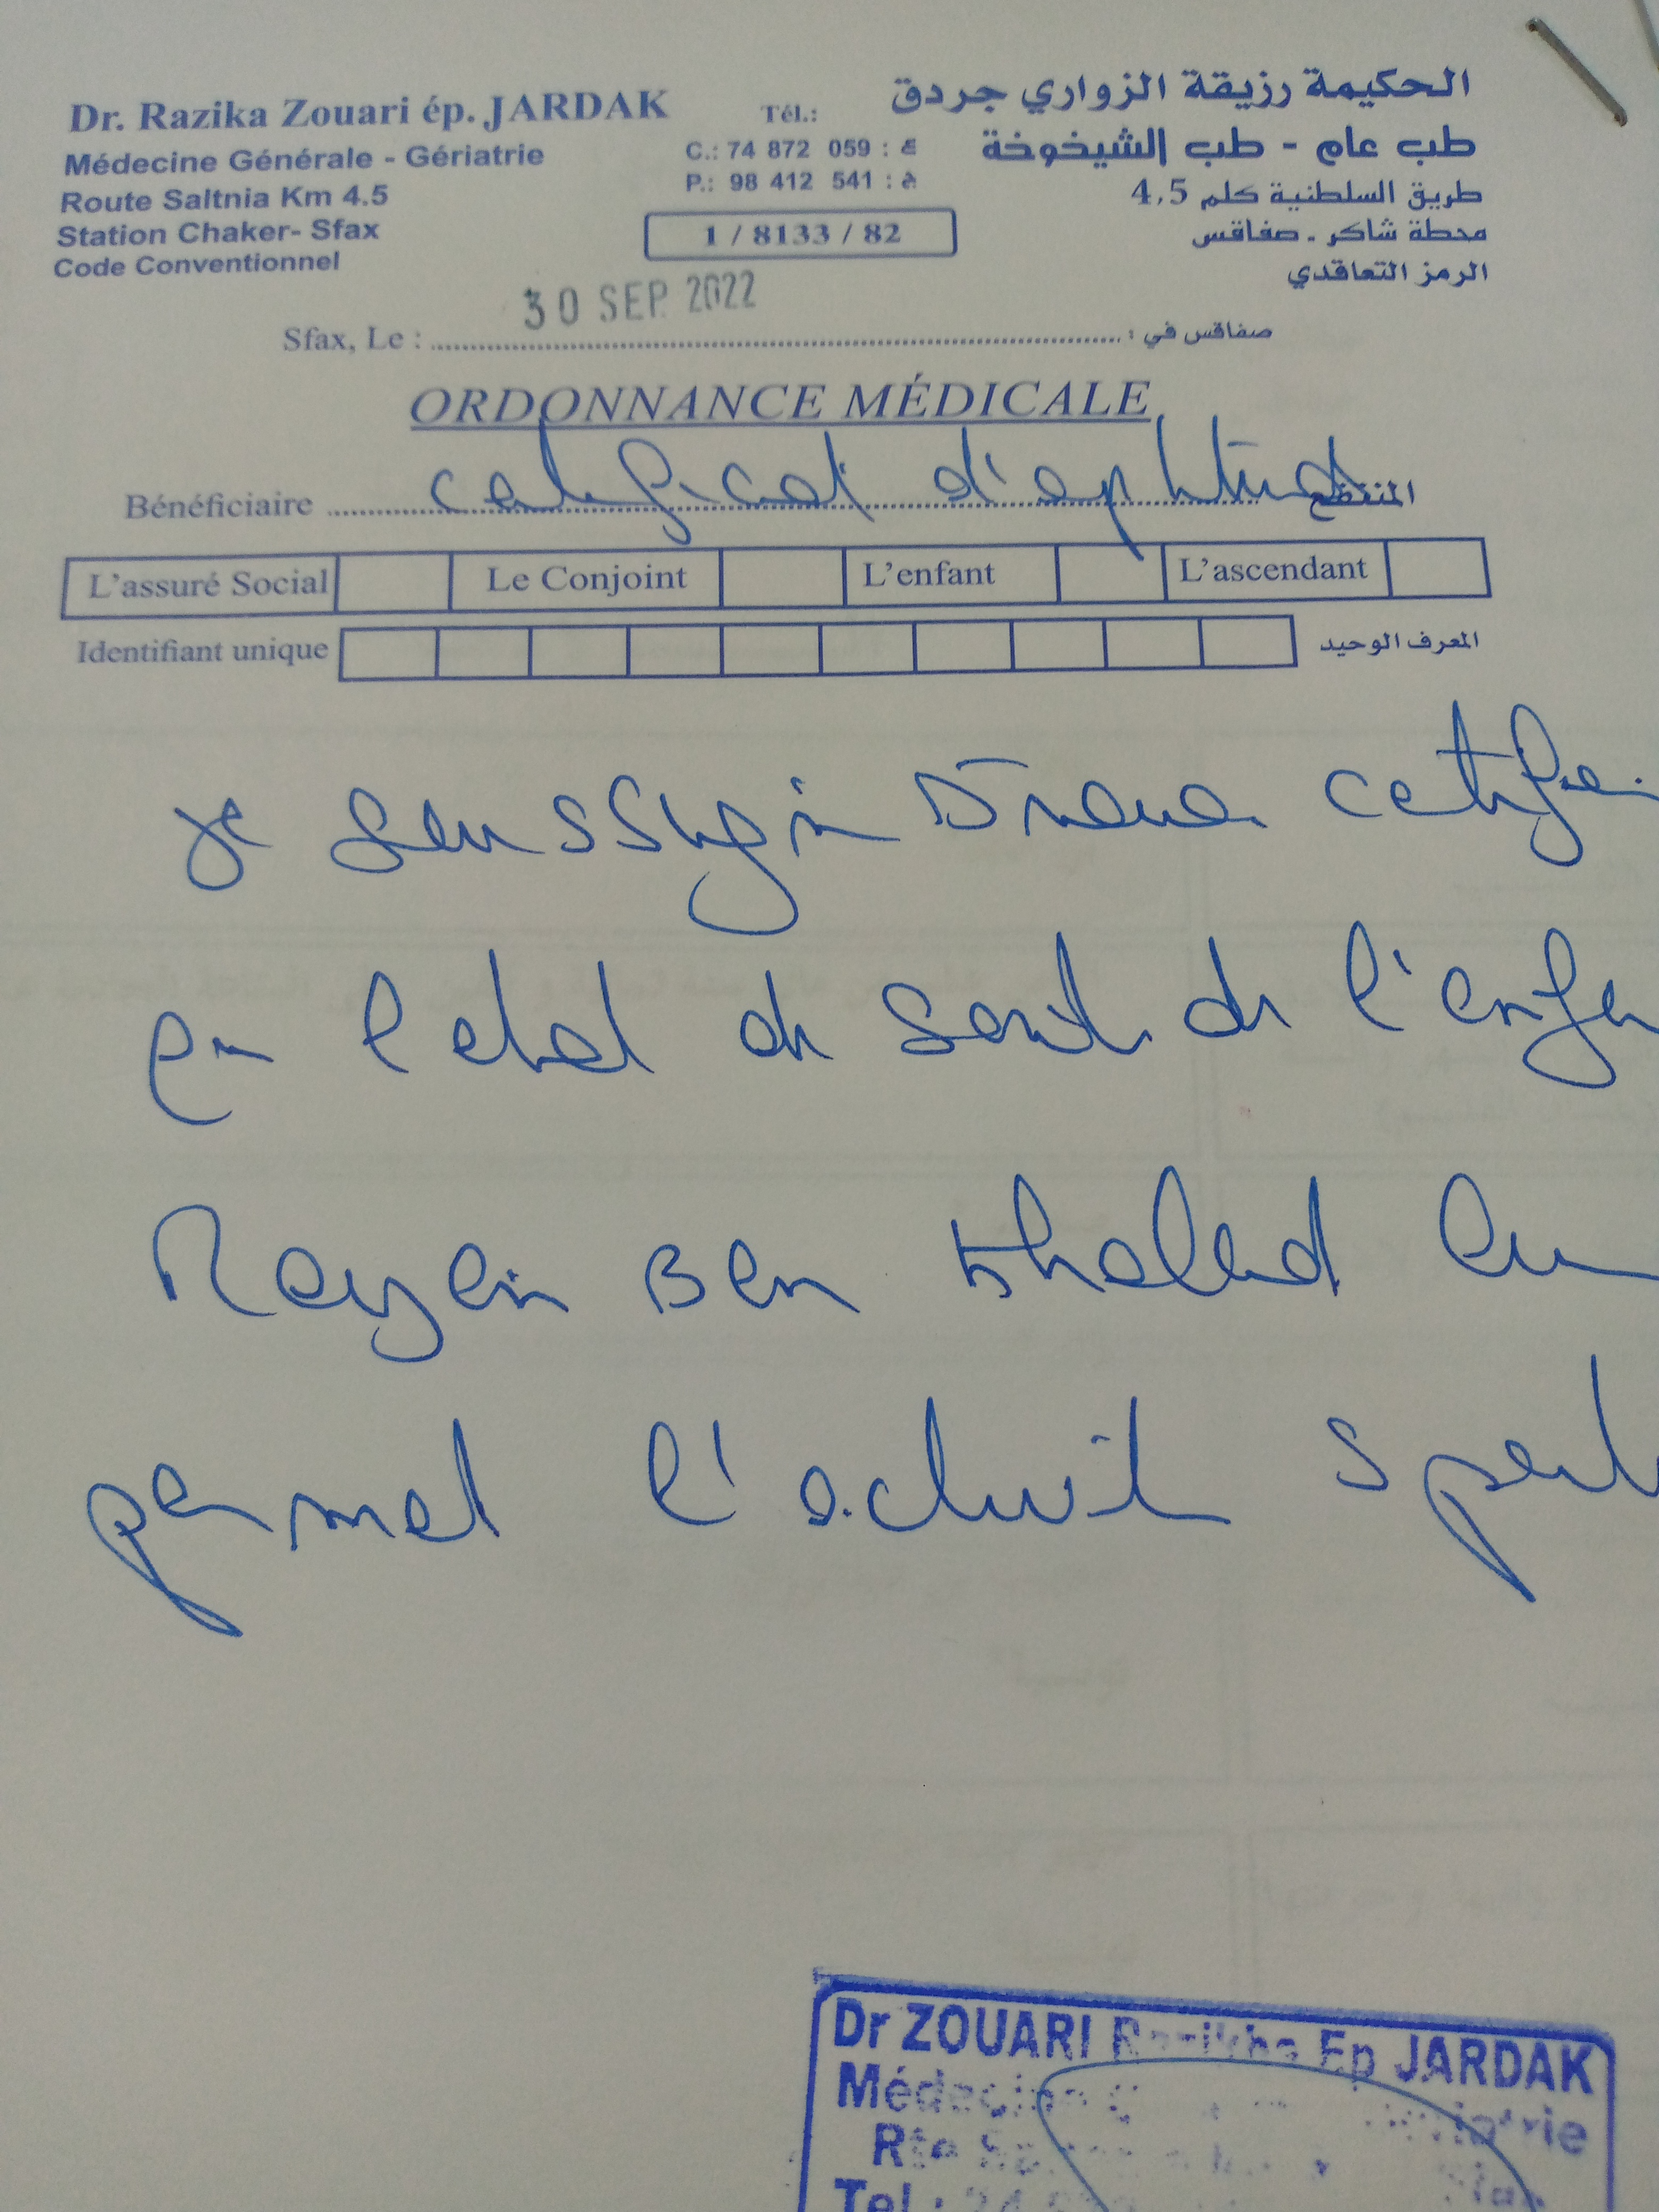 Dr. Razika Zouari ép. JARDAK
Médecine Générale - Gériatrie
Route Saltnia Km 4.5
Station Chaker- Sfax
Code Conventionnel
Tél.:
C.: 74 872 059 : ع
P.: 98 412 541 : م
1 / 8133 / 82
الحكيمة رزيقة الزواري جردق
طب عام - طب الشيخوخة
طريق السلطنية كلم 4,5
محطة شاكر - صفاقس
الرمز التعاقدي
30 SEP. 2022
Sfax, Le : صفاقس في :
ORDONNANCE MÉDICALE
Bénéficiaire certificat d'aptitud المنتفع
L'assuré Social Le Conjoint L'enfant L'ascendant
Identifiant unique المعرف الوحيد
je certifie
l'etat de santé de l'enfan
Rayen Ben Khaled lui
permet l'activité sport
Dr ZOUARI Ep JARDAK
Médecine
Rte
Tel :